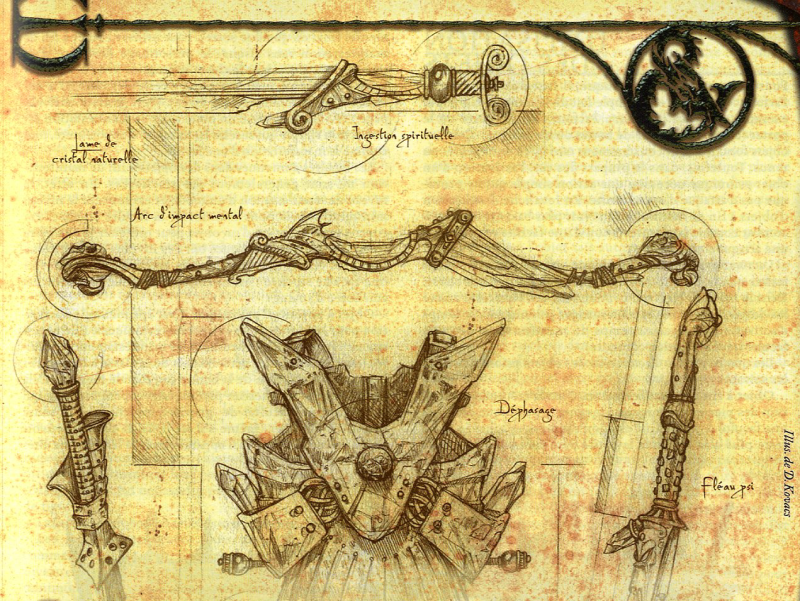 Ingestion spirituelle
Lame de
cristal naturelle
Arc d'impact mental
Déphasage
Fléau psi
Illus. de D. Kovacs